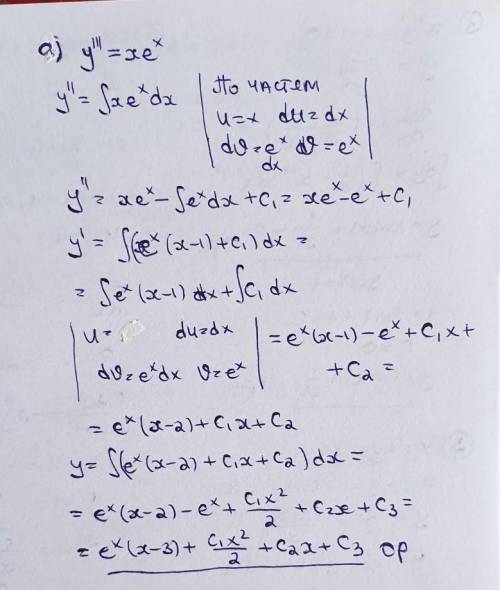 а) y''' = xeˣ
y'' = ∫xeˣdx | По частям
u = x du = dx
dϑ = eˣ dx ϑ = eˣ |
y'' = xeˣ - ∫eˣdx + C₁ = xeˣ - eˣ + C₁
y' = ∫(eˣ(x-1) + C₁)dx =
= ∫eˣ(x-1)dx + ∫C₁dx
| u = du = dx | = eˣ(x-1) - eˣ + C₁x +
dϑ = eˣdx ϑ = eˣ | + C₂ =
= eˣ(x-2) + C₁x + C₂
y = ∫(eˣ(x-2) + C₁x + C₂)dx =
= eˣ(x-2) - eˣ + C₁x²/2 + C₂x + C₃ =
= eˣ(x-3) + C₁x²/2 + C₂x + C₃ ор